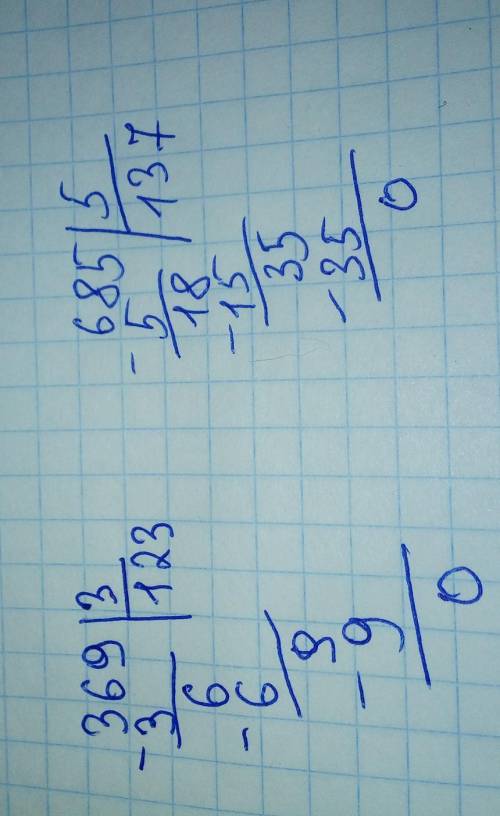 369 | 3
-3 | 123
6
-6
9
-9
0
685 | 5
-5 | 137
18
-15
35
-35
0